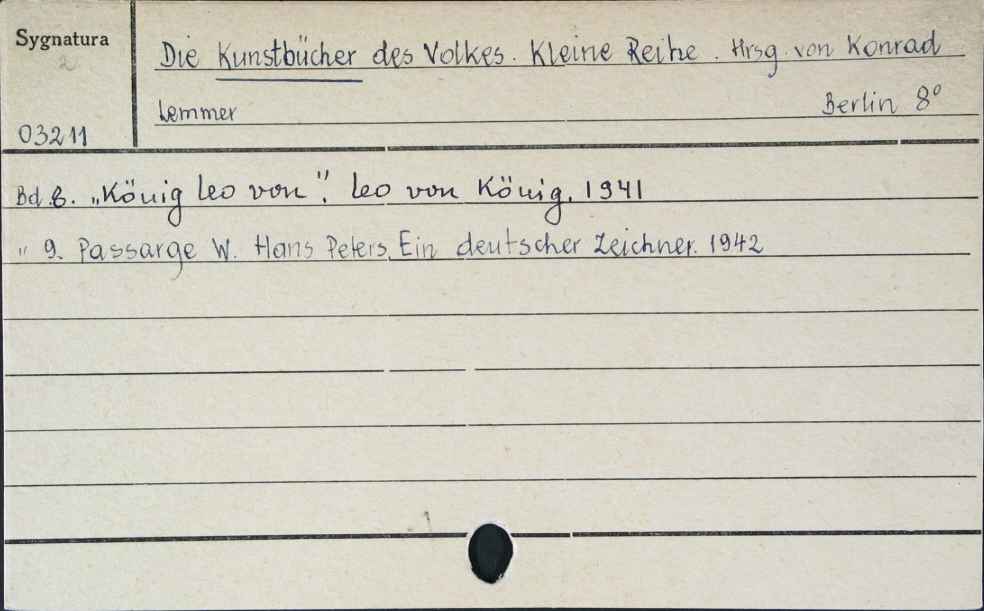 Sygnatura
2
03211
Die Kunstbücher des Volkes. Kleine Reihe. Hrsg. von Konrad
Lemmer Berlin 8°
Bd. 8. „König Leo von". Leo von König. 1941
" 9. Passarge W. Hans Peters. Ein deutscher Zeichner. 1942